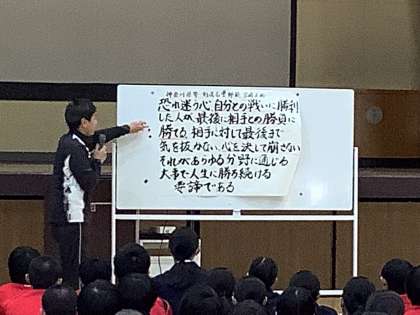 恐れ迷う心、自分との戦いに勝利
した人が、最後に相手との勝負に
勝てる。相手に対して最後まで
気を抜かない、心を決して崩さない
それがあらゆる分野に通じる
大事で人生に勝ち続ける
である